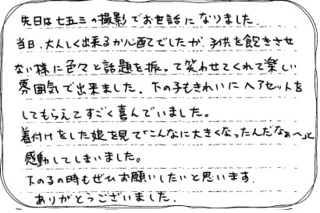 先日は七五三の撮影でお世話になりました。
当日、大人しく出来るか心配でしたが、子供を飽きさせ
ない様に色々と話題を振って笑わせてくれて楽しい
雰囲気で出来ました。下の子もきれいにヘアセットを
してもらえてすごく喜んでいました。
着付けをした娘を見て「こんなに大きくなったんだなぁ〜」と
感動してしまいました。
下の子の時もぜひお願いしたいと思います。
ありがとうございました。